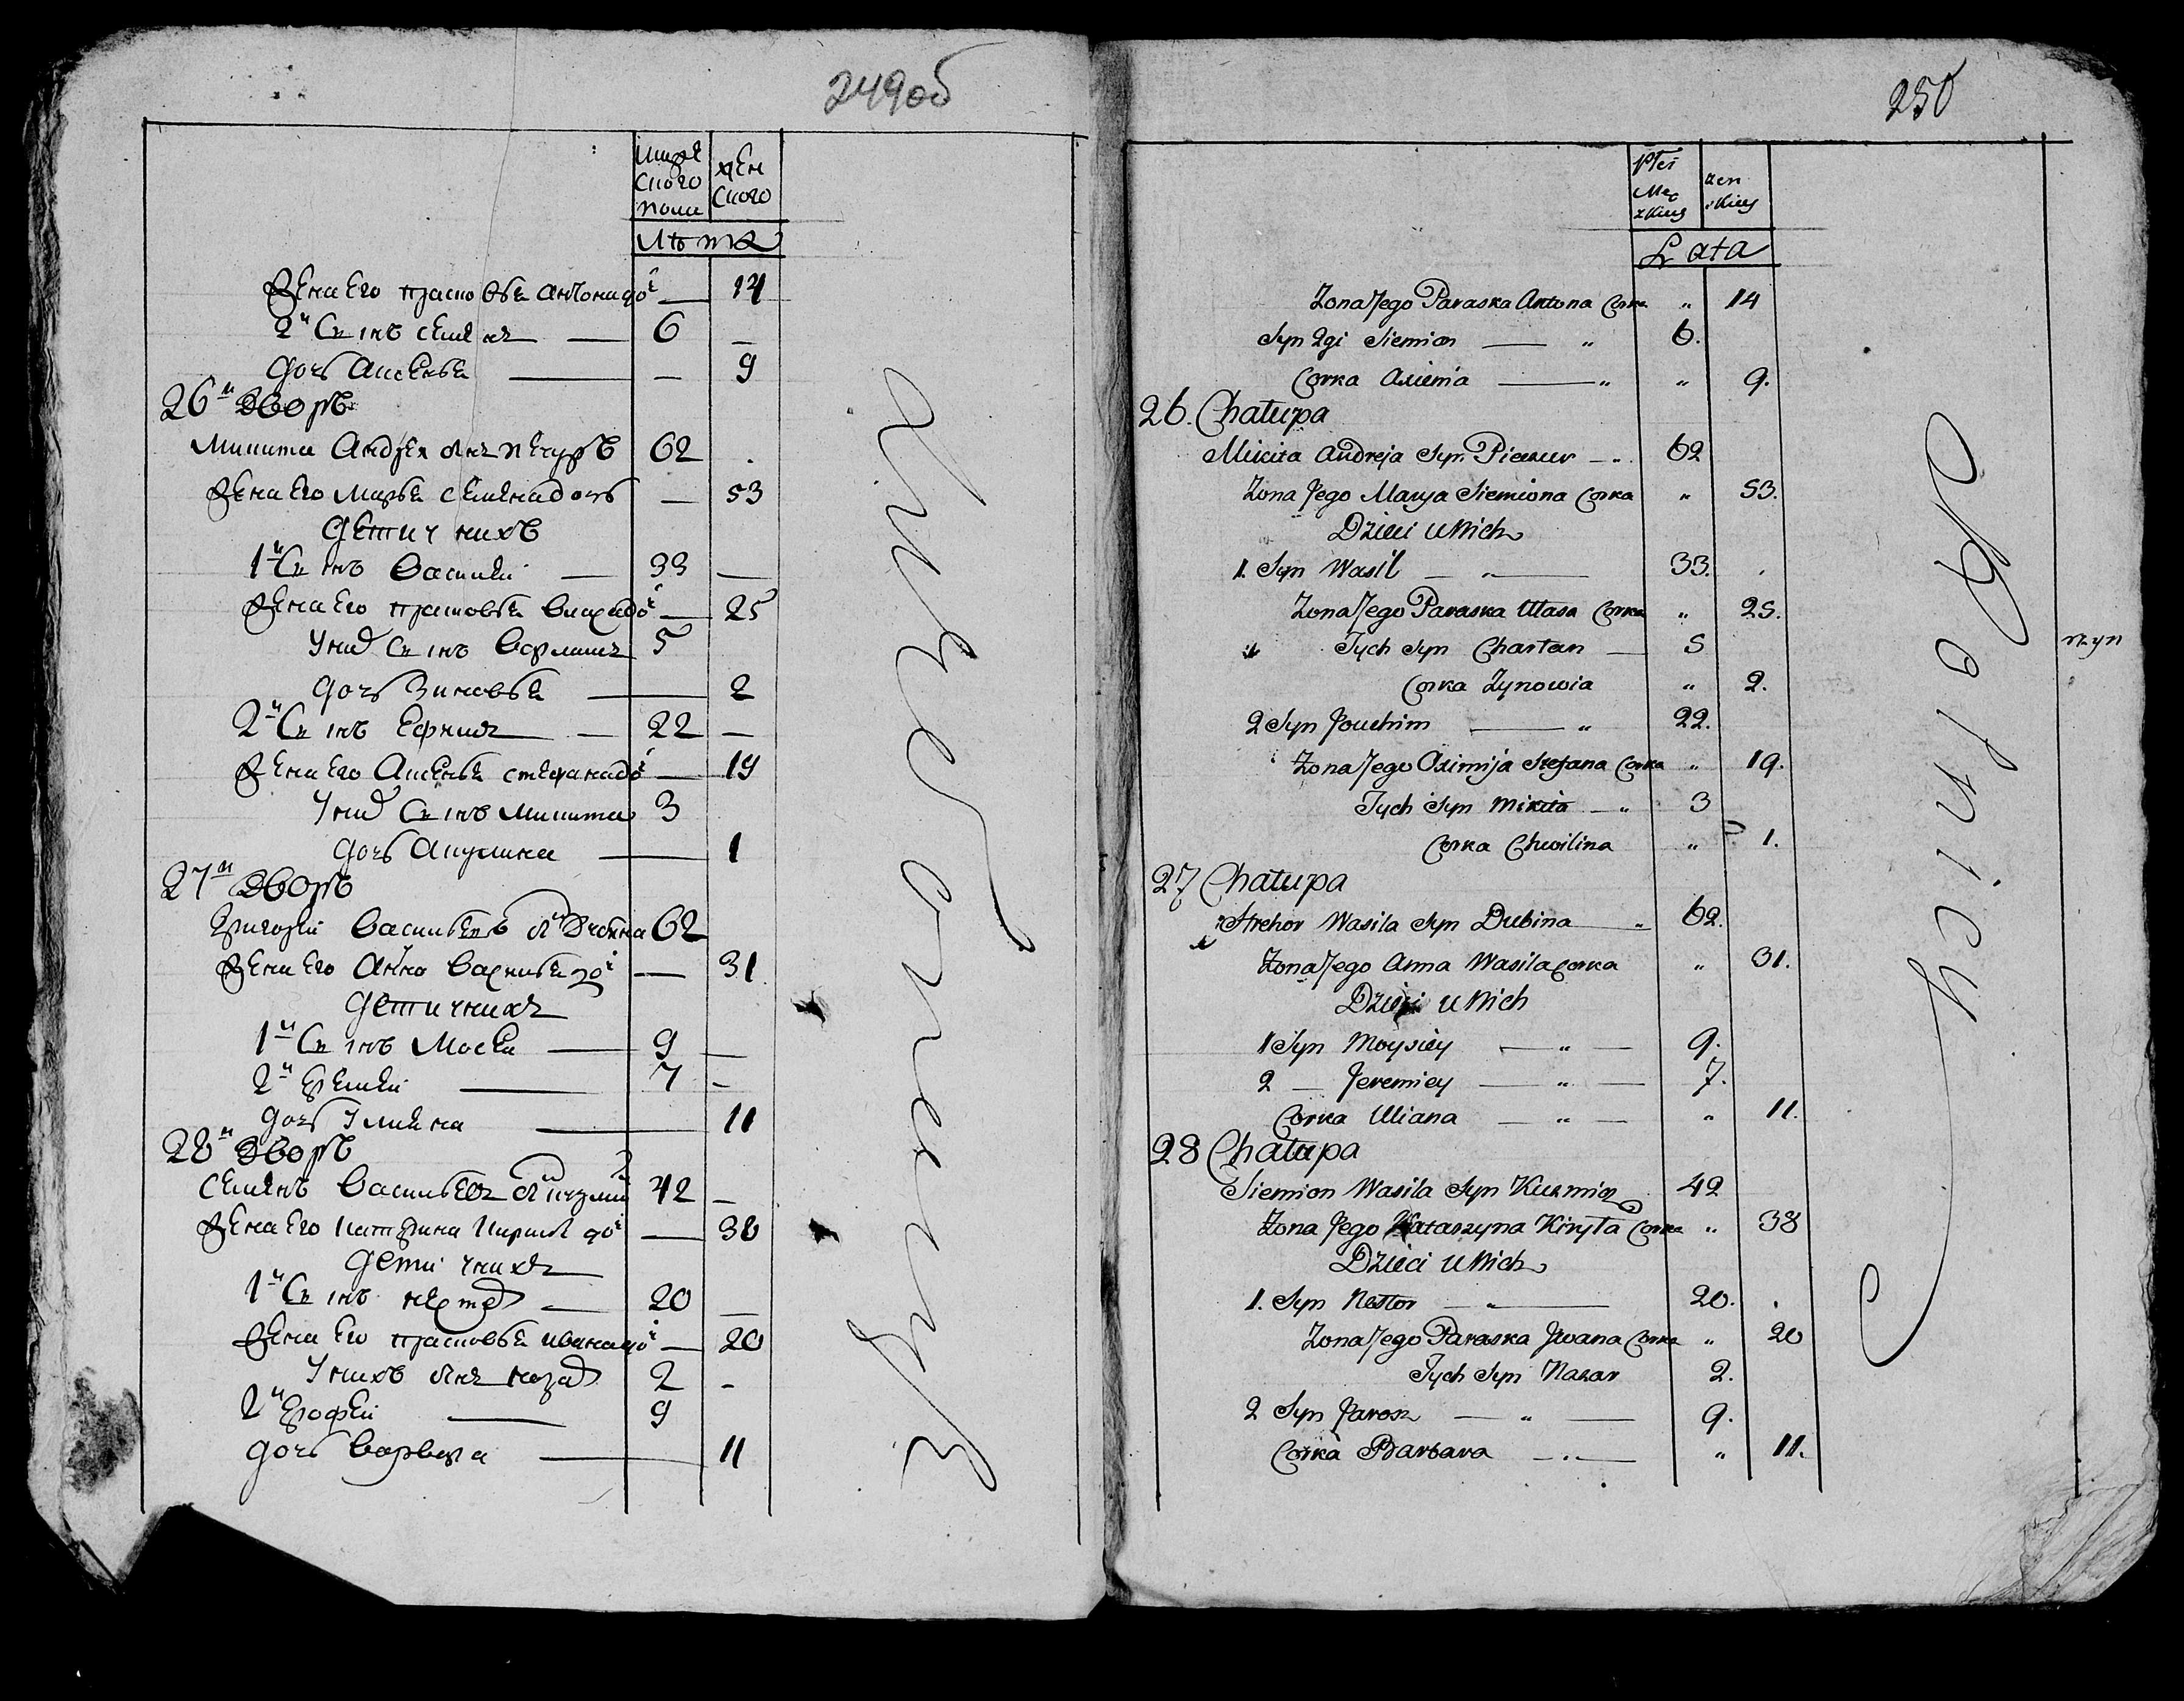 249об
мужеского пола
женского
Лѣта
Жена его прасковья антона до: 14
2й Сынъ семенъ 6
дочь Аксенья 9
26й Дворъ
Микита Андрея сынъ Печуръ 62
Жена его Марья семена дочь 53
дети у нихъ
1й Сынъ Василей 33
Жена его прасковья власа до: 25
У них Сынъ 5
дочь Зиновья 2
2й Сынъ Ефимъ 22
Жена его Аксенья стефана до: 19
У них Сынъ Микита 3
дочь Акулина 1
27й Дворъ
Григорей Васильевъ 62
Жена его Анна Васильева до: 31
дети у нихъ
1й Сынъ Мосей 9
2й Еремей 7
дочь Улияна 11
28й Дворъ
Семенъ Васильевъ 42
Жена его Катерина Кирила до: 38
дети у нихъ
1й Сынъ нестор 20
Жена его прасковья ивана до: 20
У нихъ сынъ назар 2
2й Ерофей 9
дочь варвара 11
250
Płci Męzkiey
żenskiey
Lata
Zona Jego Paraska Antona Corka " 14
Syn 2gi Siemion " 6.
Corka Axiemia " " 9.
26. Chałupa
Mikita Andreja Syn Pieczur 62
Zona Jego Marya Siemiona Corka " 53.
Dzieci u Nich
1. Syn Wasil 33.
Zona Jego Paraska Ułasa Corka " 25.
Tych Syn Chartan 5
Corka Zynowia " 2.
2 Syn Jouchim " 22.
Zona Jego Oximija Stefana Corka " 19.
Tych Syn Mikita " 3
Corka Chwilina " 1.
27 Chałupa
Hrehor Wasila Syn Dubina " 62.
Zona Jego Anna Wasila Corka " 31.
Dzieci u Nich
1 Syn Moysiey " 9.
2 — Jeremiey " 7.
Corka Uliana " " 11.
28 Chałupa
Siemion Wasila Syn Kuzmicz 42
Zona Jego Kataszyna Kiryła Corka " 38
Dzieci u Nich
1. Syn Nestor " 20.
Zona Jego Paraska Jwana Corka " 20
Tych Syn Nazar 2.
2 Syn Jarosz " 9.
Corka Barbara " 11.